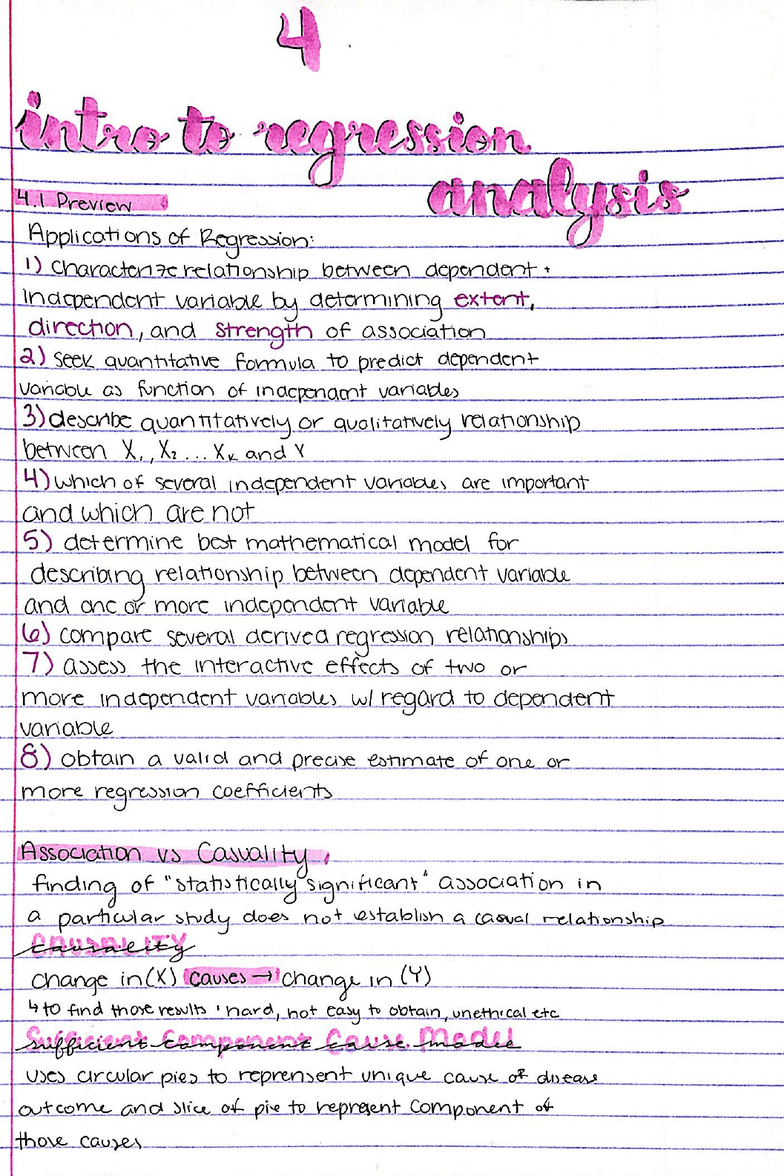 4
intro to regression
analysis
4.1 Preview
Applications of Regression:
1) Characterize relationship between dependent +
independent variable by determining extent,
direction, and strength of association
2) seek quantitative formula to predict dependent
variable as function of independent variables
3) describe quantitatively or qualitatively relationship
between X₁, X₂ ... Xₖ and Y
4) which of several independent variables are important
and which are not
5) determine best mathematical model for
describing relationship between dependent variable
and one or more independent variable
6) compare several derived regression relationships
7) assess the interactive effects of two or
more independent variables w/ regard to dependent
variable
8) obtain a valid and precise estimate of one or
more regression coefficients
Association vs Casuality
finding of "statistically significant" association in
a particular study does not establish a casual relationship
causality
change in (X) causes → change in (Y)
↳ to find those results hard, not easy to obtain, unethical etc
Sufficient Component Cause Model
uses circular pies to reprensent unique cause of disease
outcome and slice of pie to represent component of
those causes